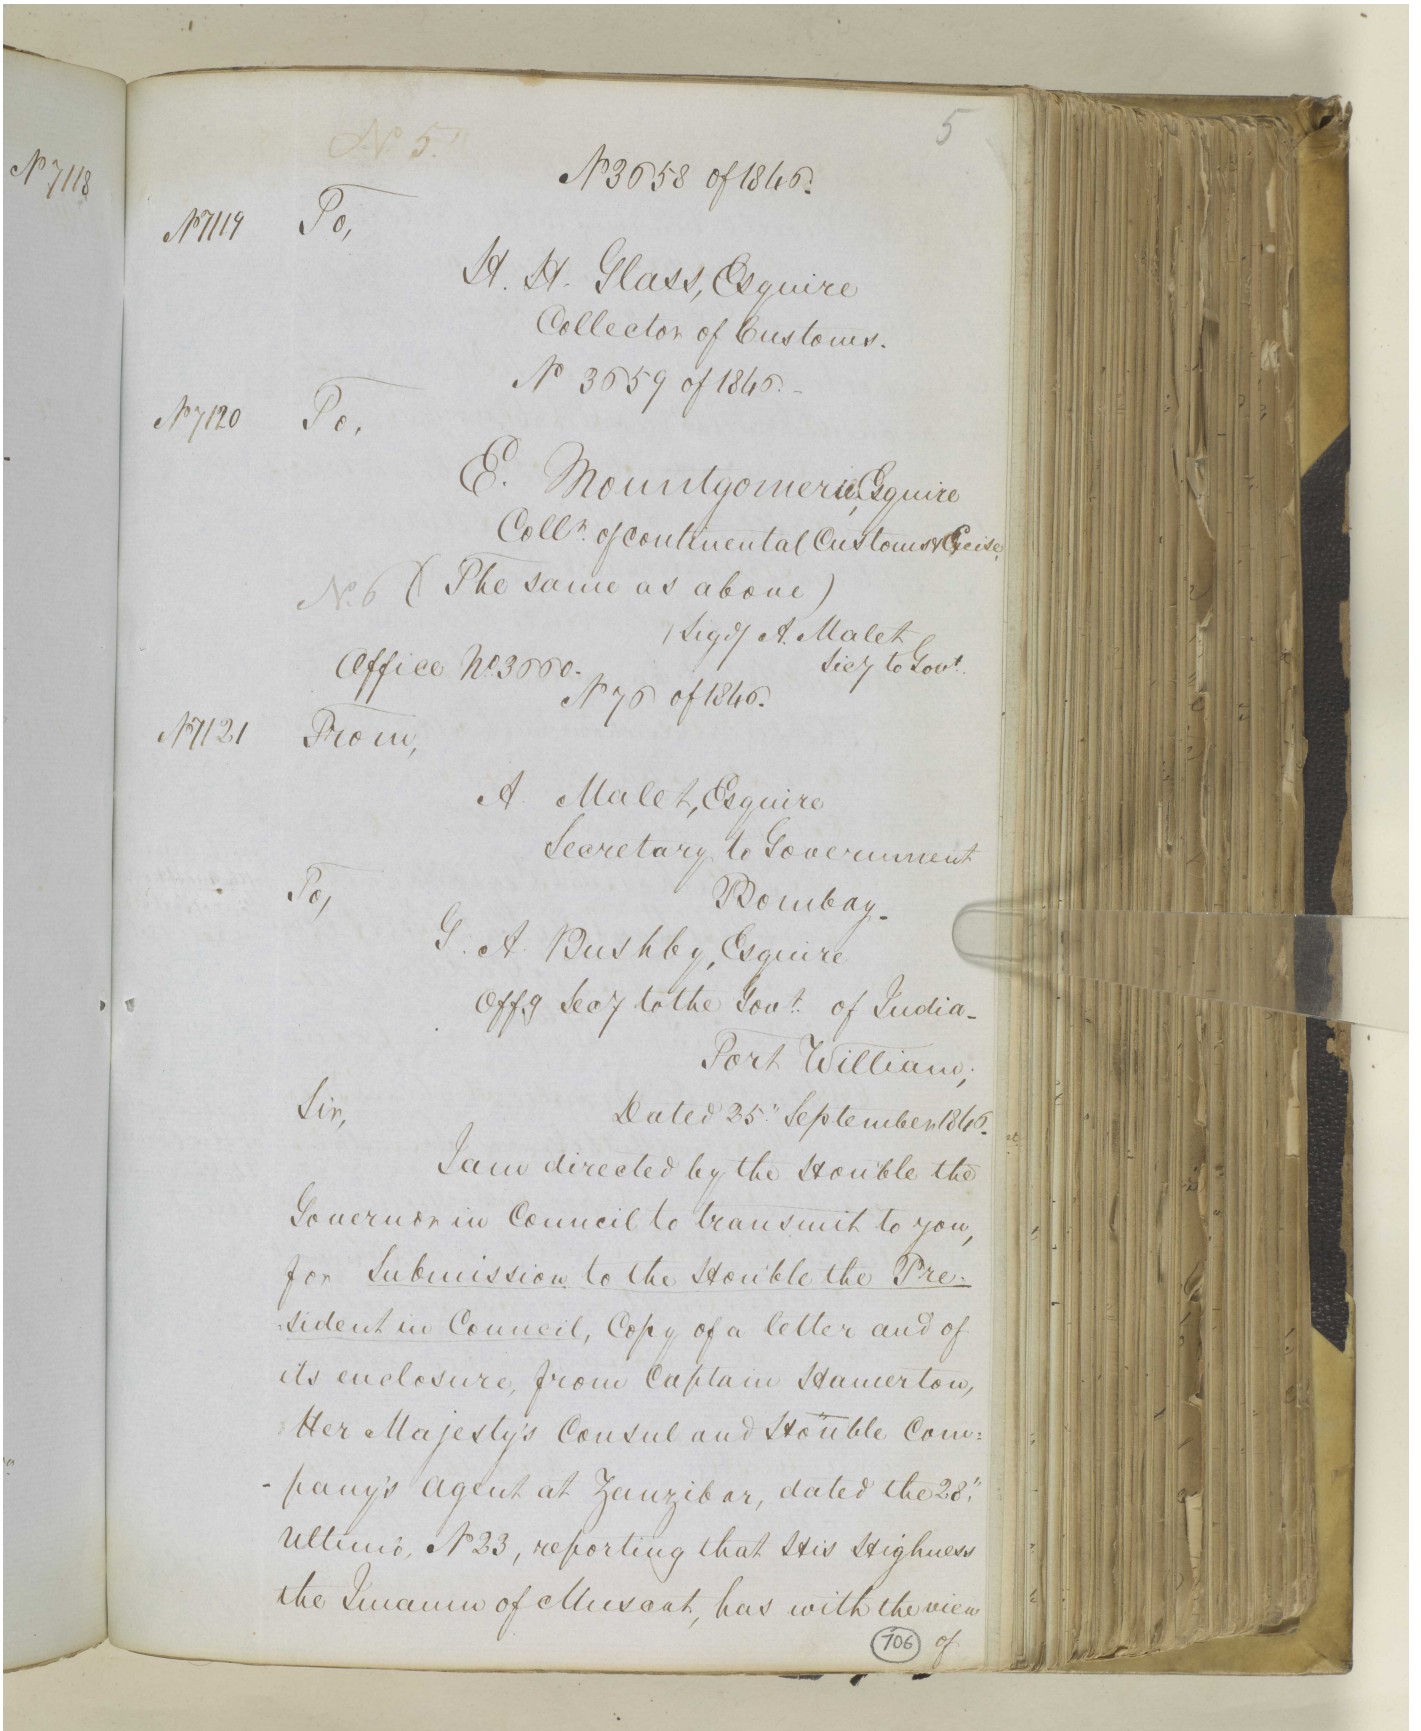 N 7118
N. 5."
5
N 3658 of 1846.
N 7119 To,
H. H. Glass, Esquire
Collector of Customs.
N 3659 of 1846.-
N 7120 To,
E. Mountgomerie, Esquire
Collr. of continental Customs & Excise,
N. 6 (The same as above)
/Sigd/ A. Malet
Secy to Govt.
Office No. 3660.
N 76 of 1846.
N 7121 From,
A. Malet, Esquire
Secretary to Government
Bombay.
To,
G. A. Bushby, Esquire
Offg Secy to the Govt. of India-
Fort William;
Sir, Dated 25" September 1846.
I am directed by the Hon'ble the
Governor in Council to transmit to you,
for Submission to the Hon'ble the Pre-
sident in Council, Copy of a letter and of
its enclosure, from Captain Hamerton,
Her Majesty's Consul and Hon'ble Com=
-pany's Agent at Zanzibar, dated the 28"
Ultimo, N 23, reporting that His Highness
the Imaum of Muscat, has with the view
706 of